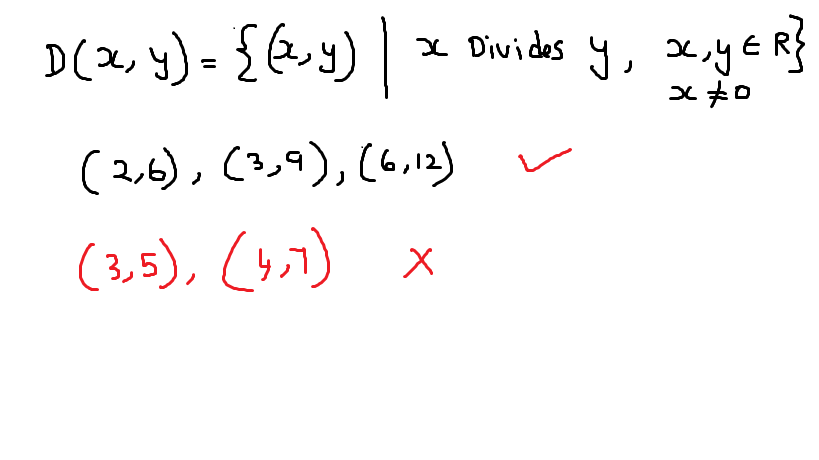 D(x, y) = {(x, y) | x Divides y, x, y ∈ R}
x ≠ 0
(2,6), (3,9), (6,12) ✓
(3,5), (4,7) X